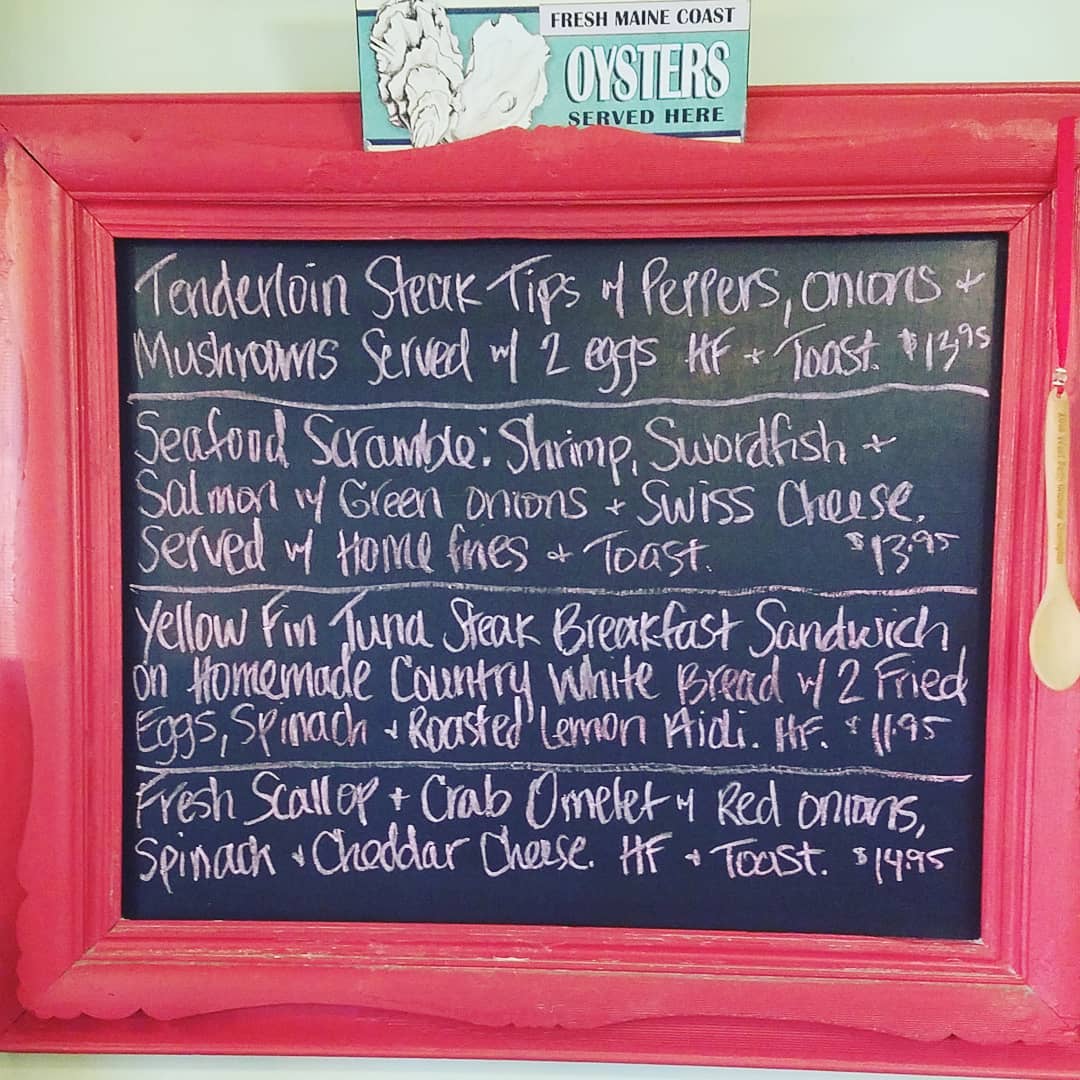 FRESH MAINE COAST
OYSTERS
SERVED HERE
Tenderloin Steak Tips w/ Peppers, onions +
Mushrooms Served w/ 2 eggs HF + Toast. $13.95
Seafood Scramble: Shrimp, Swordfish +
Salmon w/ Green onions + Swiss Cheese.
Served w/ Home fries + Toast. $13.95
Yellow Fin Tuna Steak Breakfast Sandwich
on Homemade Country White Bread w/ 2 Fried
Eggs, Spinach + Roasted Lemon Aioli. HF. $11.95
Fresh Scallop + Crab Omelet w/ Red onions,
Spinach + Cheddar Cheese. HF + Toast. $14.95